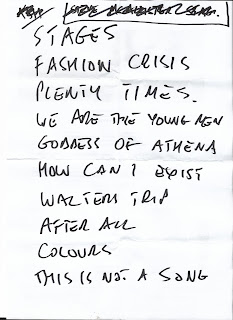 STAGES
FASHION CRISIS
PLENTY TIMES.
WE ARE THE YOUNG MEN
GODDESS OF ATHENA
HOW CAN I EXIST
WALTERS TRIP
AFTER ALL
COLOURS
THIS IS NOT A SONG